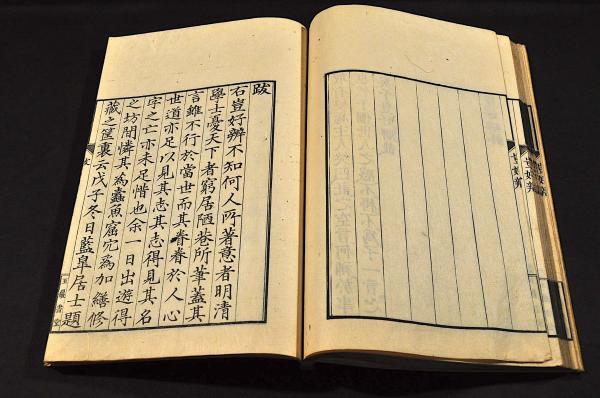 跋
右豈好辨不知何人所著意者明清
學士憂天下者窮居陋巷所筆蓋其
言雖不行於當世而其眷眷於人心
世道亦足以見其志其志得見其名
字之亡亦未足惜也余一日出遊得
之坊間憐其為蠹魚窟宂為加繕修
藏之筐裏云戊子冬日藍皐居士題